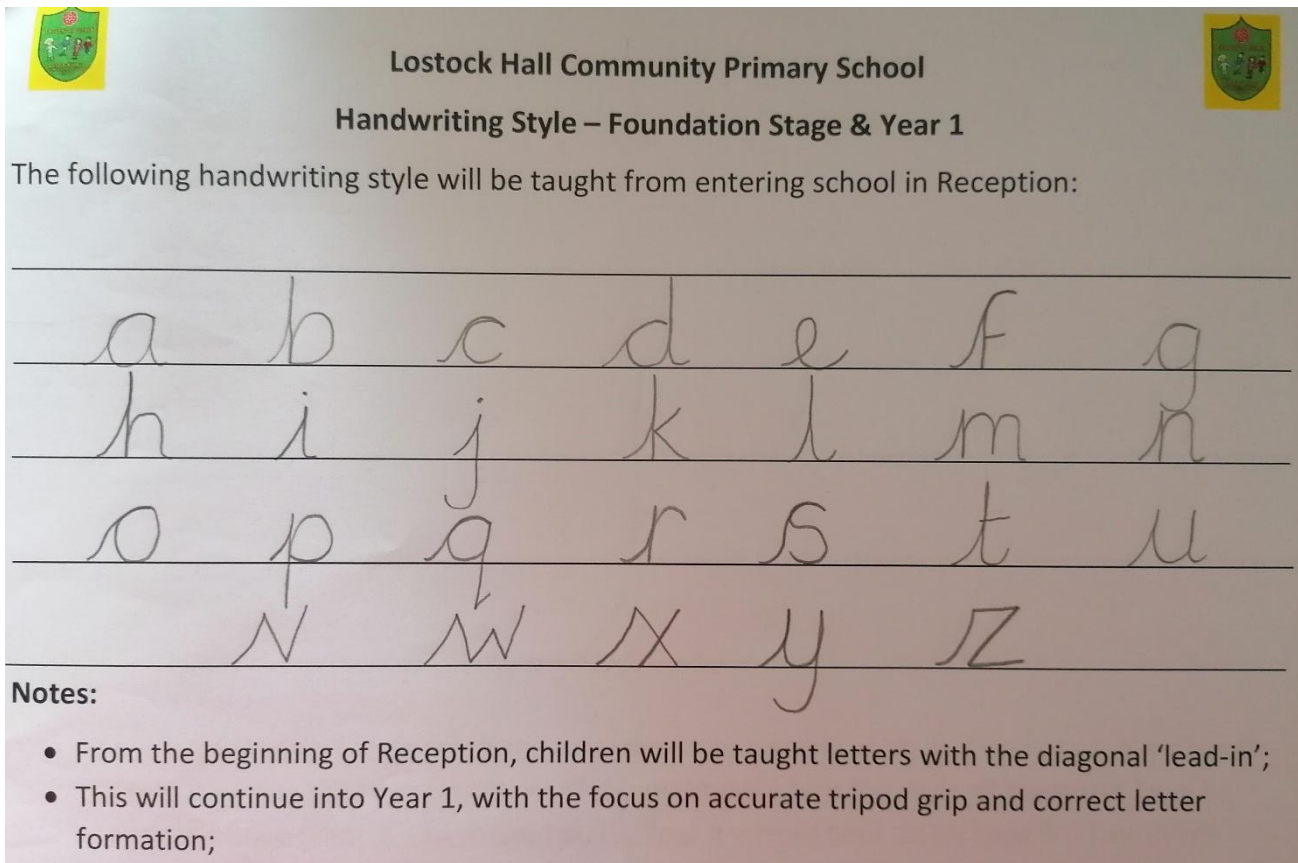 Lostock Hall Community Primary School
Handwriting Style – Foundation Stage & Year 1
The following handwriting style will be taught from entering school in Reception:
a b c d e f g
h i j k l m n
o p q r s t u
v w x y z
Notes:
• From the beginning of Reception, children will be taught letters with the diagonal ‘lead-in’;
• This will continue into Year 1, with the focus on accurate tripod grip and correct letter
formation;